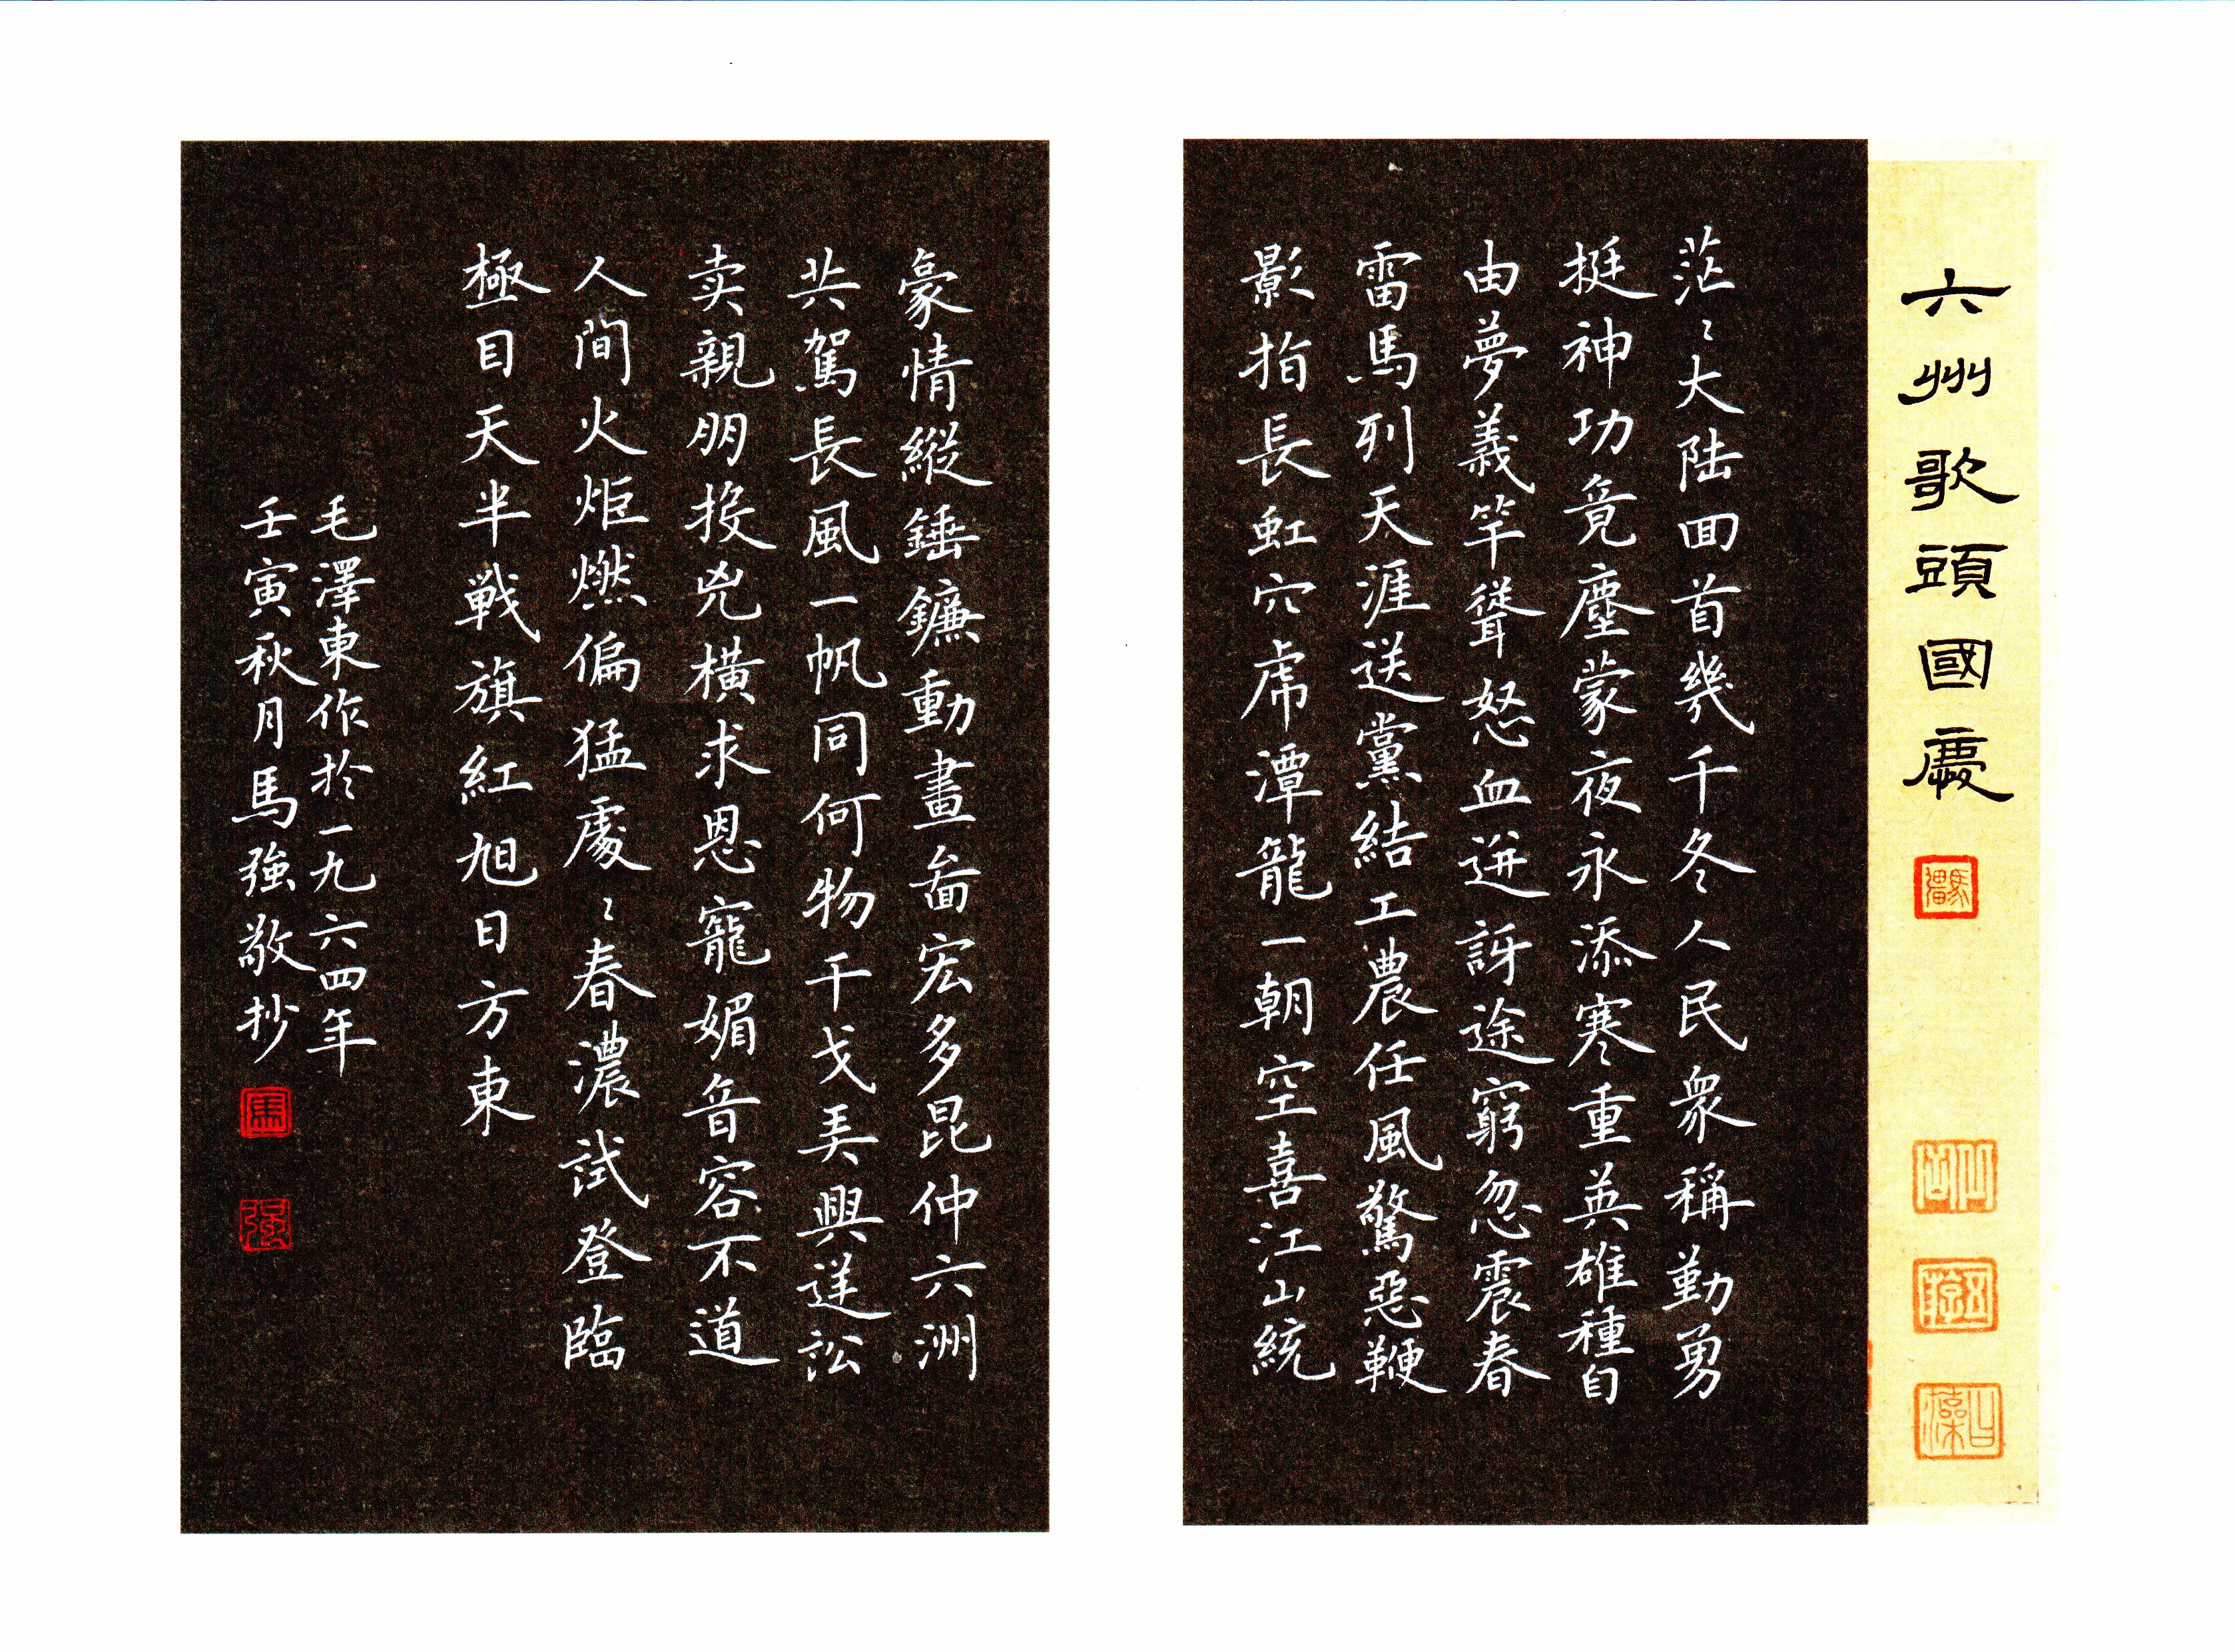 六州歌頭國慶
茫〻大陆回首幾千冬人民衆稱勤勇
挺神功竟塵蒙夜永添寒重英雄種自
由夢義竿聳怒血迸訝途窮忽震春
雷馬列天涯送黨結工農任風驚惡鞭
影指長虹穴虎潭龍一朝空喜江山統
豪情縱錘鐮動畫啚宏多昆仲六洲
共駕長風一帆同何物干戈弄興逆訟
卖親朋投兇橫求恩寵媚音容不道
人間火炬燃偏猛處〻春濃試登臨
極目天半戦旗紅旭日方東
毛澤東作於一九六四年
壬寅秋月馬強敬抄
馬
强